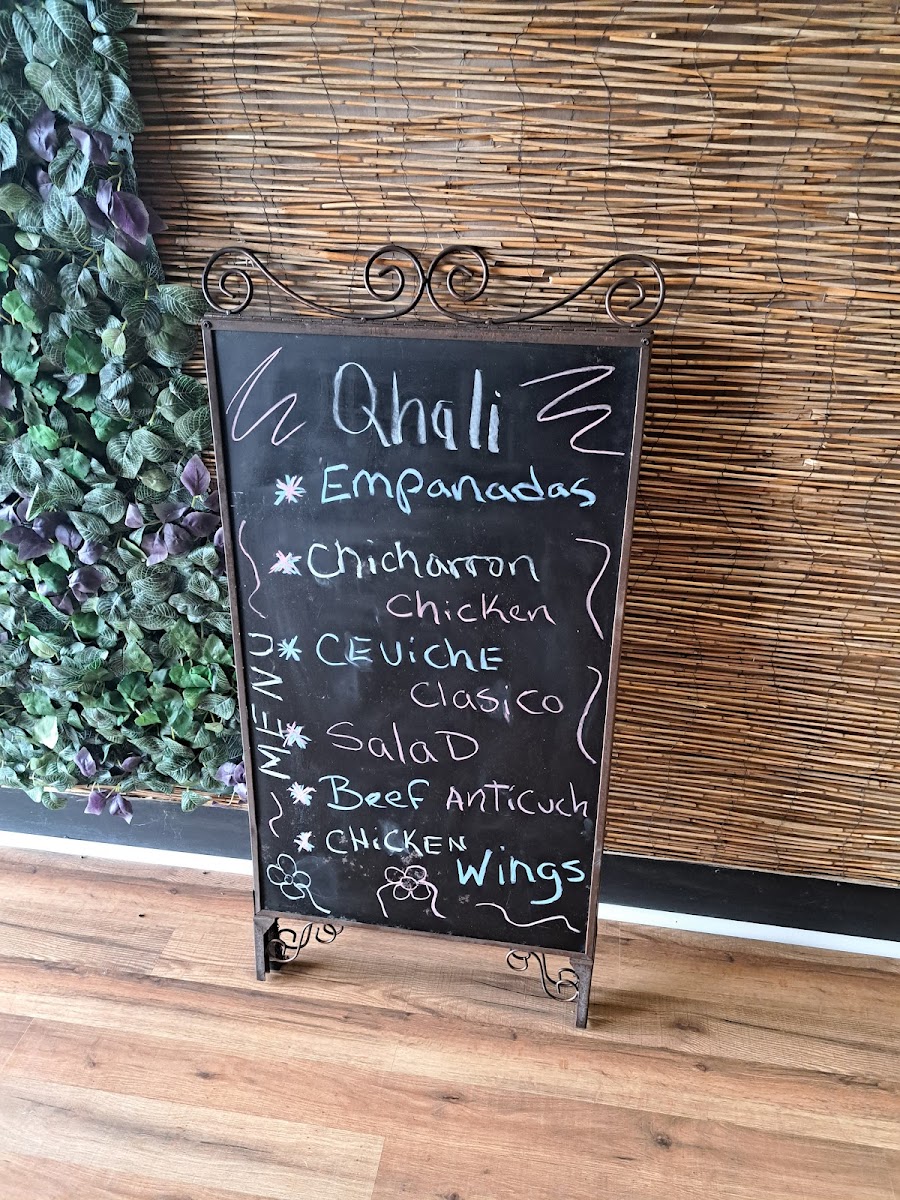 Qhali
* Empanadas
* Chicharron
Chicken
* CEVichE
Clasico
* SalaD
* Beef ANTicuch
* CHiCKEN
Wings
MENU